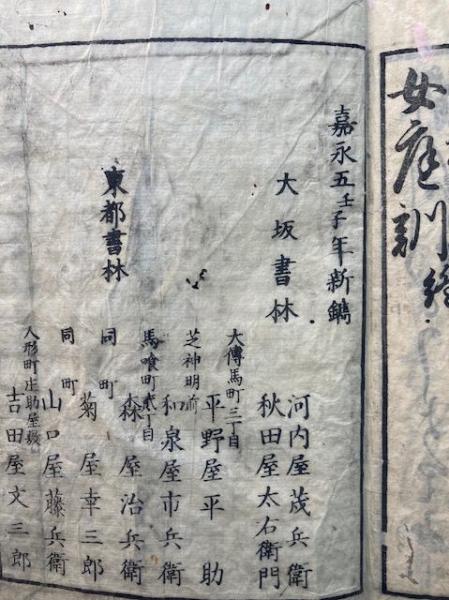 女庭訓終
嘉永五壬子年新鐫
大坂書林
河内屋茂兵衛
秋田屋太右衛門
東都書林
大傳馬町三丁目
平野屋平助
芝神明前
和泉屋市兵衛
馬喰町貳丁目
森屋治兵衛
同町
菊屋幸三郎
同町
山口屋藤兵衛
人形町庄助屋敷
吉田屋文三郎